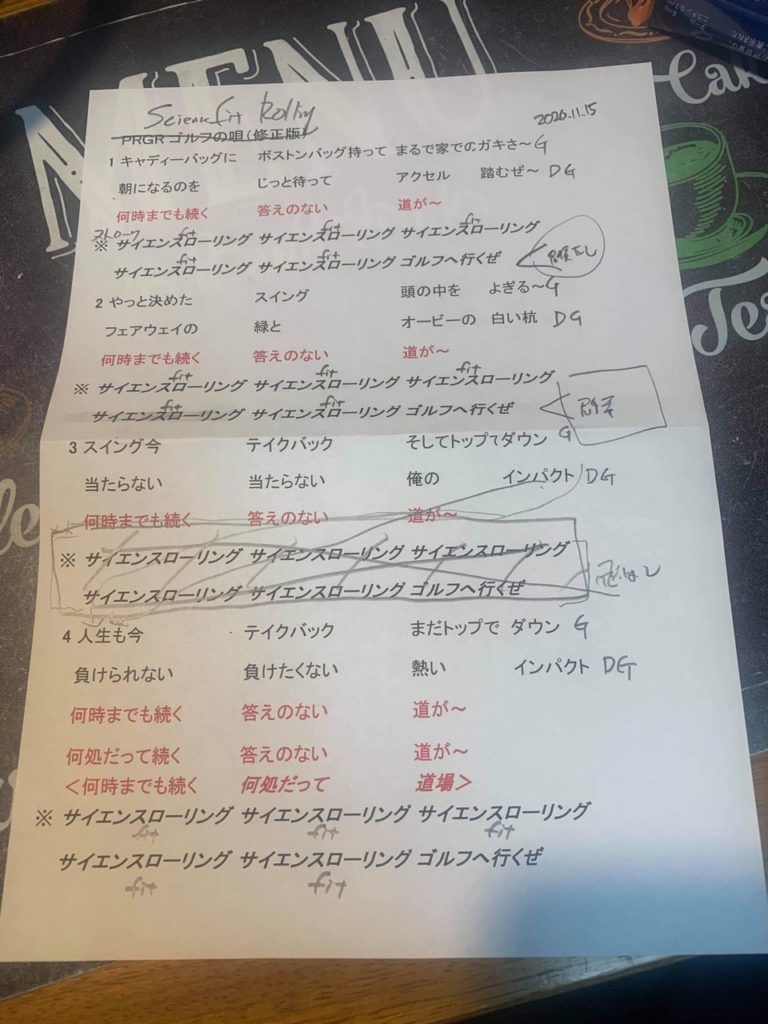 MENU
Science fit Rolling
2020.11.15
PRGR ゴルフの唄(修正版)
1 キャディーバッグに ボストンバッグ持って まるで家でのガキさ～ G
朝になるのを じっと待って アクセル 踏むぜ～ DG
何時までも続く 答えのない 道が～
ストローク
fit fit fit
※ サイエンスローリング サイエンスローリング サイエンスローリング
fit fit
サイエンスローリング サイエンスローリング ゴルフへ行くぜ
2 やっと決めた スイング 頭の中を よぎる～ G
フェアウェイの 緑と オービーの 白い杭 DG
何時までも続く 答えのない 道が～
fit fit fit
※ サイエンスローリング サイエンスローリング サイエンスローリング
fit fit
サイエンスローリング サイエンスローリング ゴルフへ行くぜ
3 スイング今 テイクバック そしてトップでダウン G
当たらない 当たらない 俺の インパクト DG
何時までも続く 答えのない 道が～
※ サイエンスローリング サイエンスローリング サイエンスローリング
サイエンスローリング サイエンスローリング ゴルフへ行くぜ
4 人生も今 テイクバック まだトップで ダウン G
負けられない 負けたくない 熱い インパクト DG
何時までも続く 答えのない 道が～
何処だって続く 答えのない 道が～
＜何時までも続く 何処だって 道場＞
※ サイエンスローリング サイエンスローリング サイエンスローリング
fit fit fit
サイエンスローリング サイエンスローリング ゴルフへ行くぜ
fit fit